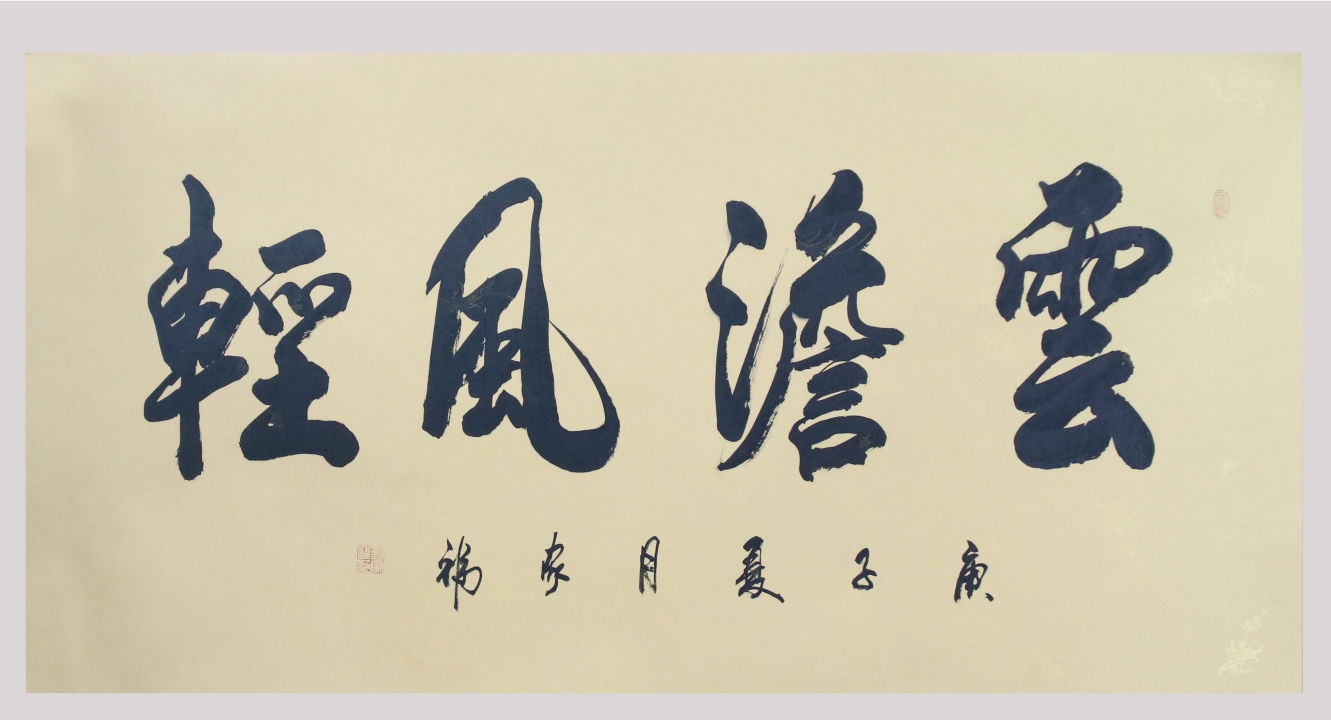 雲澹風輕
庚子夏月家福